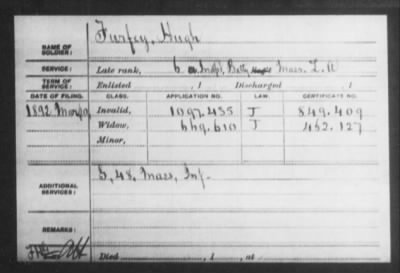 NAME OF SOLDIER: Furfey, Hugh
SERVICE: Late rank, Indpt, Batty Mass. L. A
TERM OF SERVICE: Enlisted , 1 Discharged , 1
DATE OF FILING. CLASS. APPLICATION NO. LAW. CERTIFICATE NO.
1892 Invalid, 1097.435 J 849.409
Widow, 669.610 J 462.127
Minor,
ADDITIONAL SERVICES: G, 48, Mass, Inf.
REMARKS:
Died , 1 , at